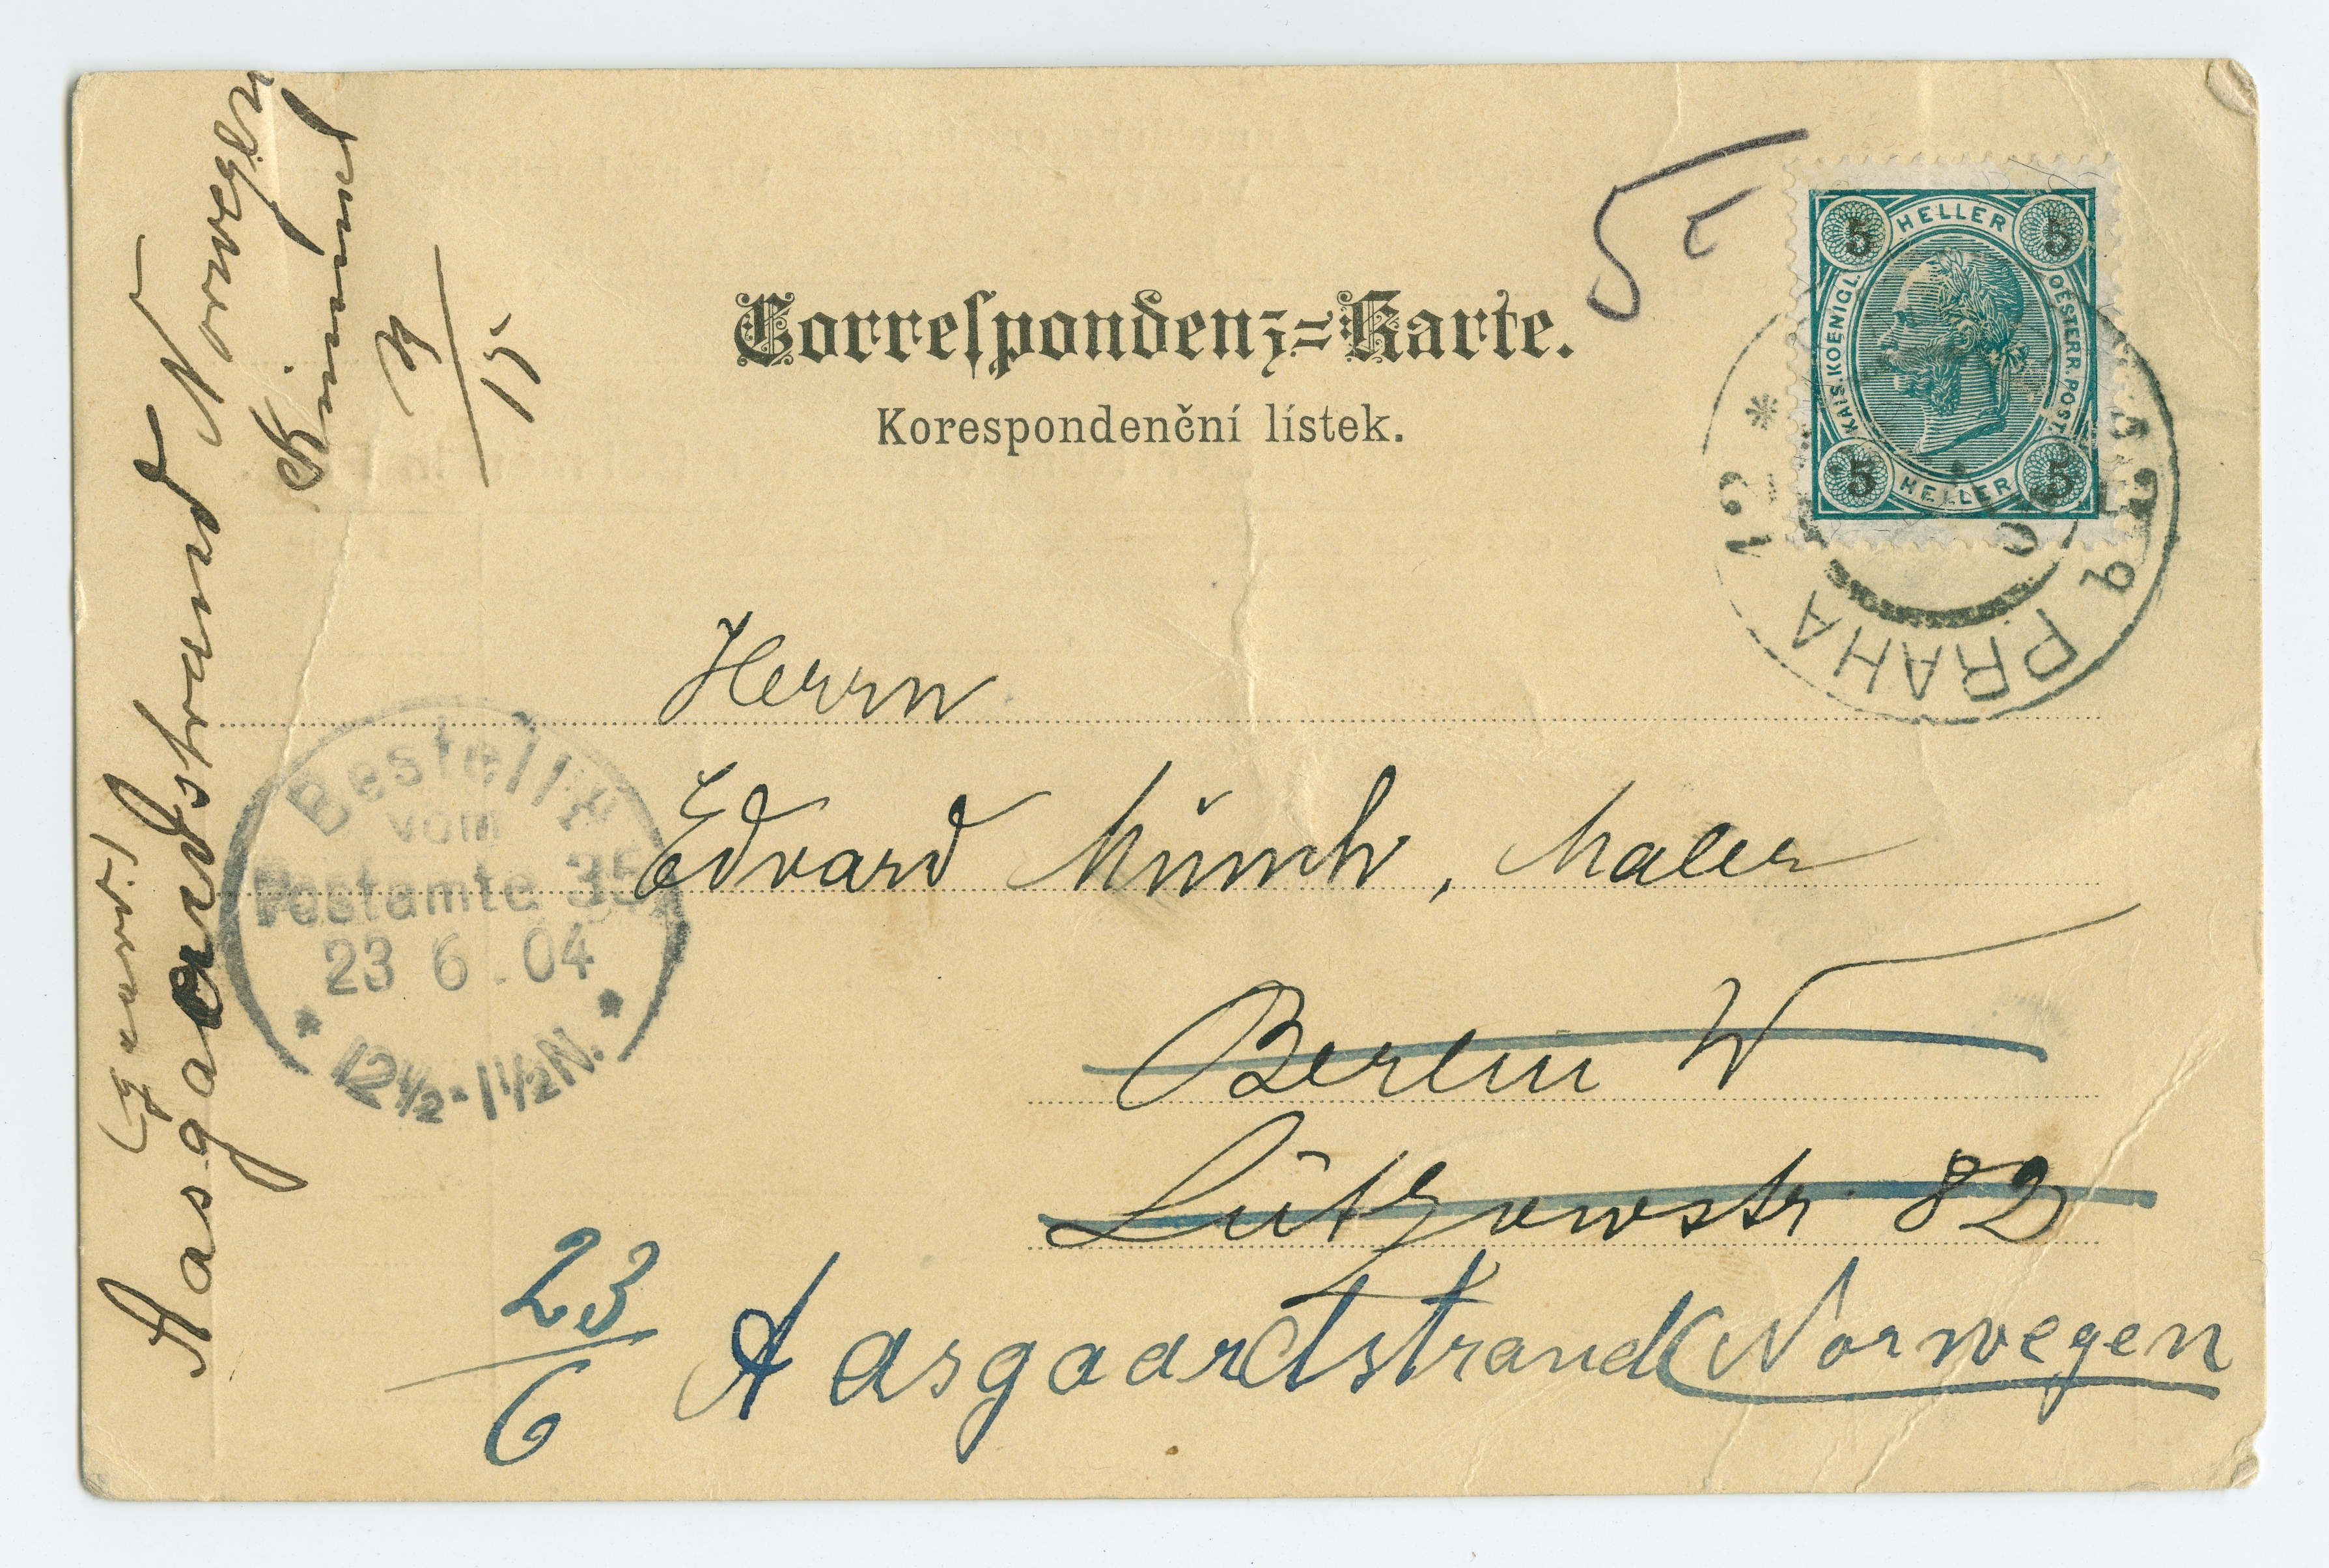 Correspondenz-Karte.
Korespondenční lístek.
5
HELLER
5
KAIS. KOENIGL.
OESTERR. POST.
5
HELLER
5
PRAHA
12
Herrn
Edvard Münch, Maler
Berlin W
Lützowstr. 82
Aasgaardstrand Norwegen
23/6
Bestellt
vom
Postamte 35
23 6. 04
12½-1½N.
Aasgaardstrand Norwegen